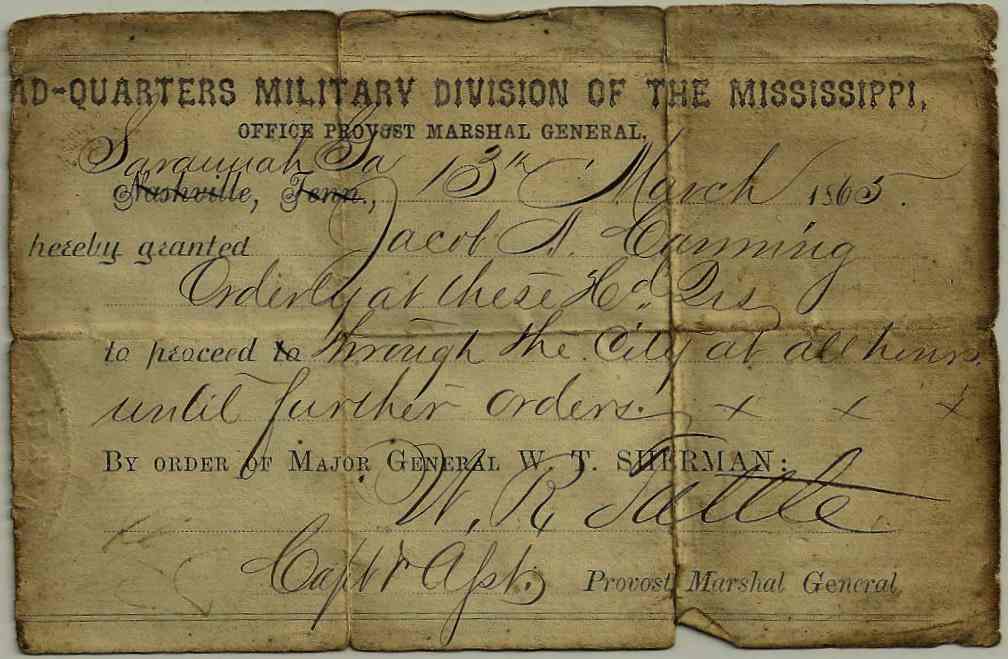 AD-QUARTERS MILITARY DIVISION OF THE MISSISSIPPI,
OFFICE PROVOST MARSHAL GENERAL,
Savannah Ga
Nashville, Tenn., 13th March 1865.
hereby granted Jacob A. Canning
Orderly at these Hd. Qrs
to proceed to through the City at all hours.
until further orders. x x x
BY ORDER OF MAJOR GENERAL W. T. SHERMAN:
W. R. Tuttle
Capt & Asst. Provost Marshal General